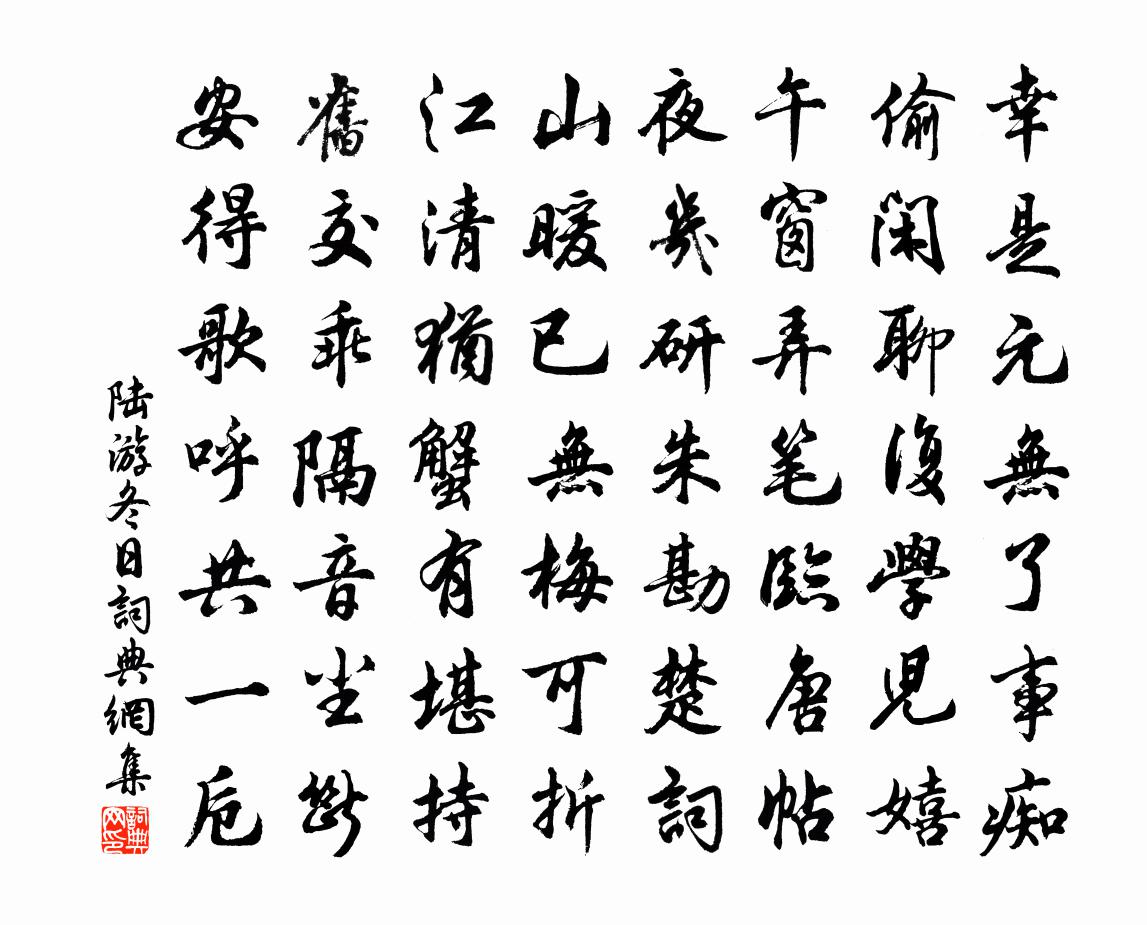 幸是元無了事痴
偷閑聊復學兒嬉
午窗弄笔臨唐帖
夜幾研朱勘楚詞
山暖已無梅可折
江清猶蟹有堪持
舊交乖隔音塵斷
安得歌呼共一卮
陆游冬日詞典網集
詞典网印